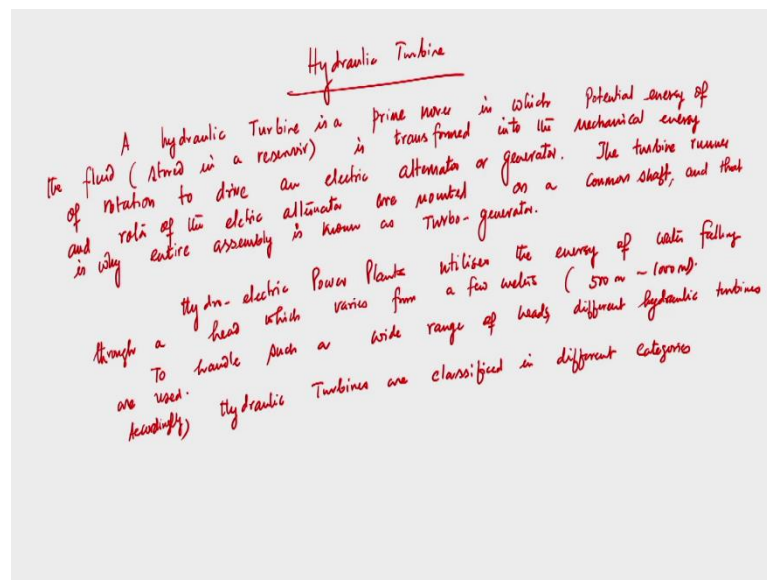 Hydraulic Turbine
A hydraulic Turbine is a prime mover in which Potential energy of
the fluid (stored in a reservoir) is transformed into the mechanical energy
of rotation to drive an electric alternator or generator. The turbine runner
and rotor of the elctric alternator are mounted on a common shaft, and that
is why entire assembly is known as Turbo-generator.
Hydro-electric Power Plants utilises the energy of water falling
through a head which varies from a few meters (500 m ~ 1000 m).
To handle such a wide range of heads, different hydraulic turbines
are used.
Accordingly, Hydraulic Turbines are classified in different categories